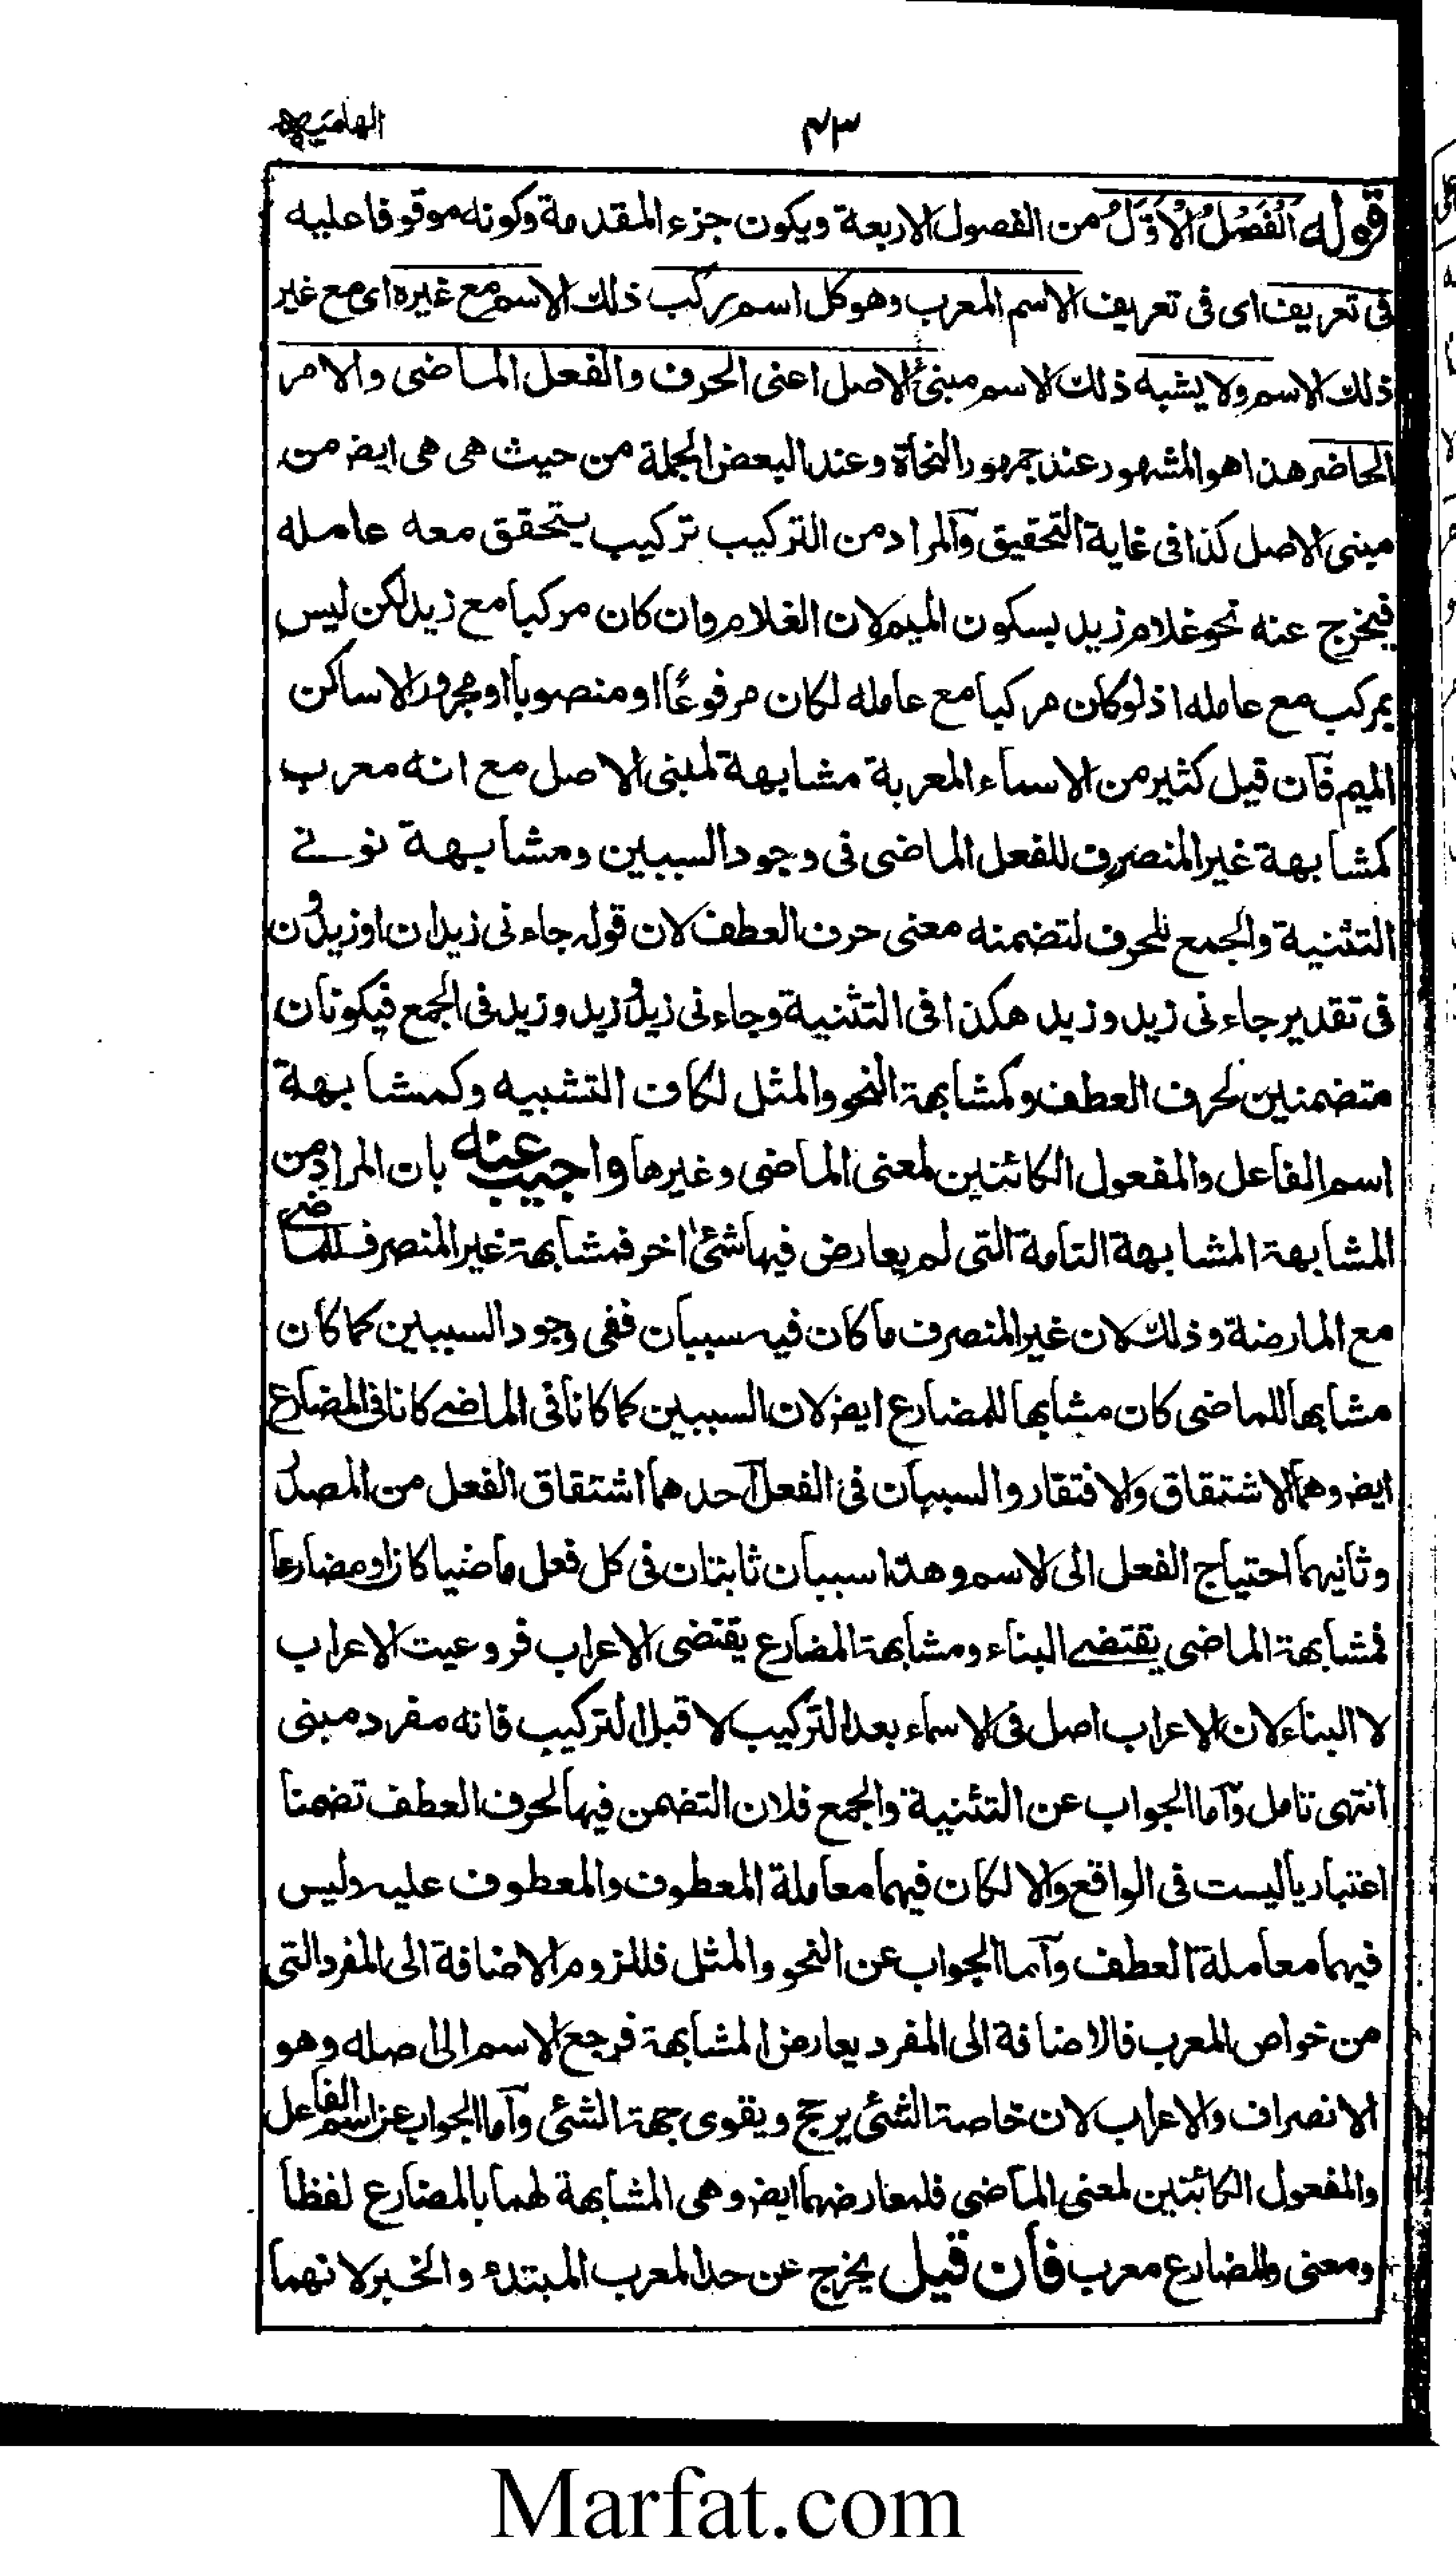 ٤٣
قوله اَلْفَصْلُ الْاَوَّلُ من الفصول الاربعة ويكون جزء المقدمة وكونه موقوفا عليه
فى تعريف اى فى تعريف الاسم المعرب وهو كل اسم ركب ذلك الاسم مع غيره اى مع غير
ذلك الاسم ولا يشبه ذلك الاسم مبنى الاصل اعنى الحرف والفعل الماضى والامر
الحاضر هذا هو المشهور عند جمهور النحاة وعند البعض الجملة من حيث هى هى ايضر من
مبنى الاصل كذا فى غاية التحقيق والمراد من التركيب تركيب يتحقق معه عامله
فيخرج عنه نحو غلام زيد بسكون الميم لان الغلام وان كان مركبا مع زيد لكن ليس
بمركب مع عامله اذ لو كان مركبا مع عامله لكان مرفوعًا او منصوبا او مجرور الا ساكن
الميم فآن قيل كثير من الاسماء المعربة مشابهة لمبنى الاصل مع انه معرب
كمشابهة غير المنصرف للفعل الماضى فى وجود السببين ومشابهة نونے
التثنية والجمع للحرف لتضمنه معنى حرف العطف لان قوله جاءنى زيدان او زيدون
فى تقدير جاءنى زيد وزيد هكذا فى التثنية وجاءنى زيد وزيد وزيد فى الجمع فيكونان
متضمنين لحرف العطف وكمشابهة النحو والمثل لكاف التشبيه وكمشابهة
اسم الفاعل والمفعول الكائنين لمعنى الماضى وغيرها واجيب عنه بان المراد من
المشابهة المشابهة التامة التى لم يعارض فيها شئ اخر فمشابهة غير المنصرف للماضے
مع المارضة وذلك لان غير المنصرف ما كان فيه سببان ففى وجود السببين كما كان
مشابها للماضى كان مشابها للمضارع ايضر لان السببين كما كانا فى الماضے كانا فى المضارع
ايضر وهما الاشتقاق والافتقار والسببان فى الفعل آحدهما اشتقاق الفعل من المصدر
وثانيهما احتياج الفعل الى الاسم وهذا سببان ثابتان فى كل فعل ماضيا كان او مضارعا
فمشابهة الماضى يقتضے البناء ومشابهة المضارع يقتضى الاعراب فروعيت الاعراب
لا البناء لان الاعراب اصل فى الاسماء بعد التركيب لا قبل التركيب فانه مفرد مبنى
انتهى تامل وآما الجواب عن التثنية والجمع فلان التضمن فيها لحرف العطف تضمنا
اعتباريا ليست فى الواقع والا لكان فيهما معاملة المعطوف والمعطوف عليه وليس
فيهما معاملة العطف وآما الجواب عن النحو والمثل فللزوم الاضافة الى المفرد التى
من خواص المعرب فالاضافة الى المفرد يعارض المشابهة فرجع الاسم الى اصله وهو
الانصراف والاعراب لان خاصة الشئ يرجح ويقوى جهة الشئ وآما الجواب عن اسم الفاعل
والمفعول الكائنين لمعنى الماضى فلمعارضهما ايضر وهى المشابهة لهما بالمضارع لفظا
ومعنى والمضارع معرب فأن قيل يخرج عن حد المعرب المبتدء والخبر لانهما
Marfat.com